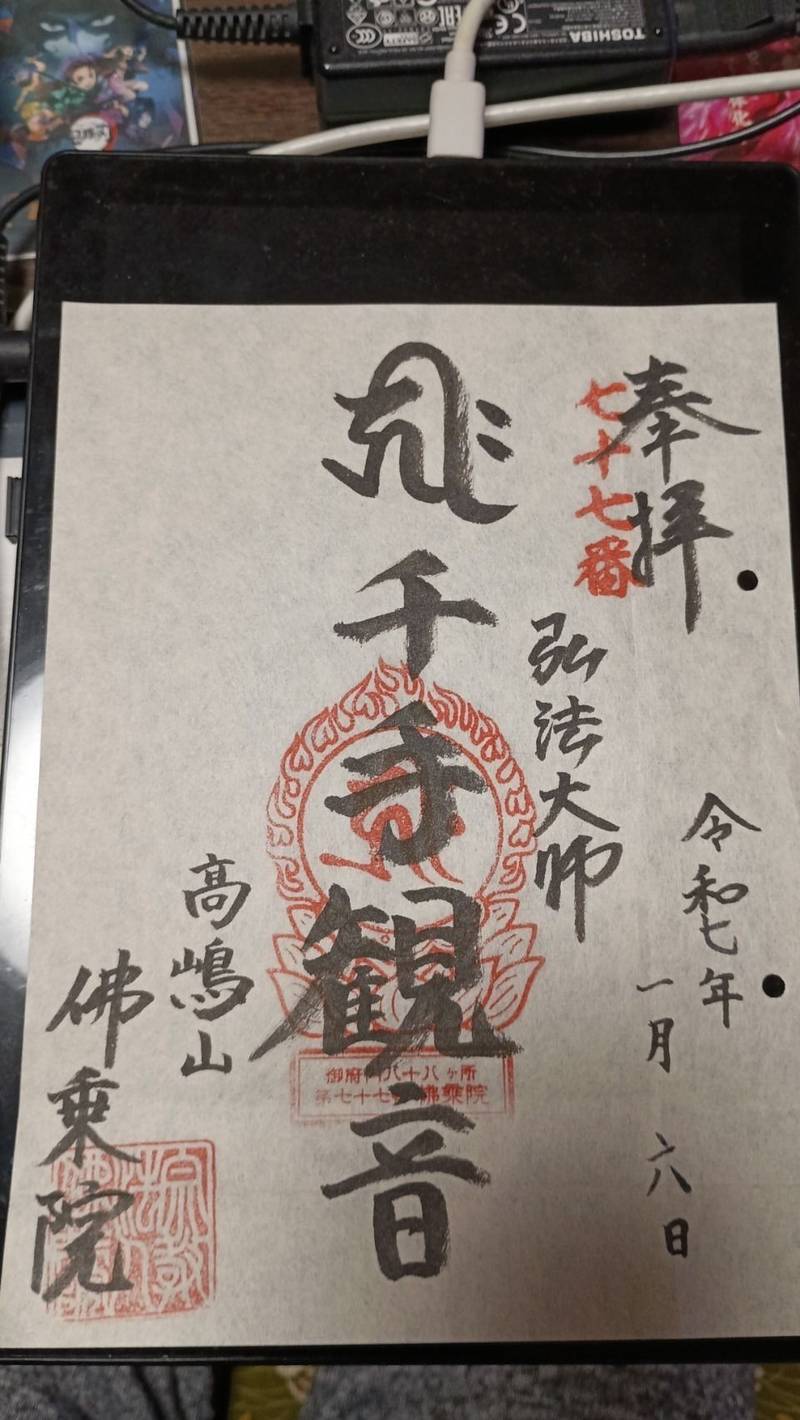 奉拝
七十七番
令和七年
一月 六日
弘法大師
千手観音
御府内八十八ヶ所
第七十七番佛乗院
高嶋山
佛乗院
TOSHIBA